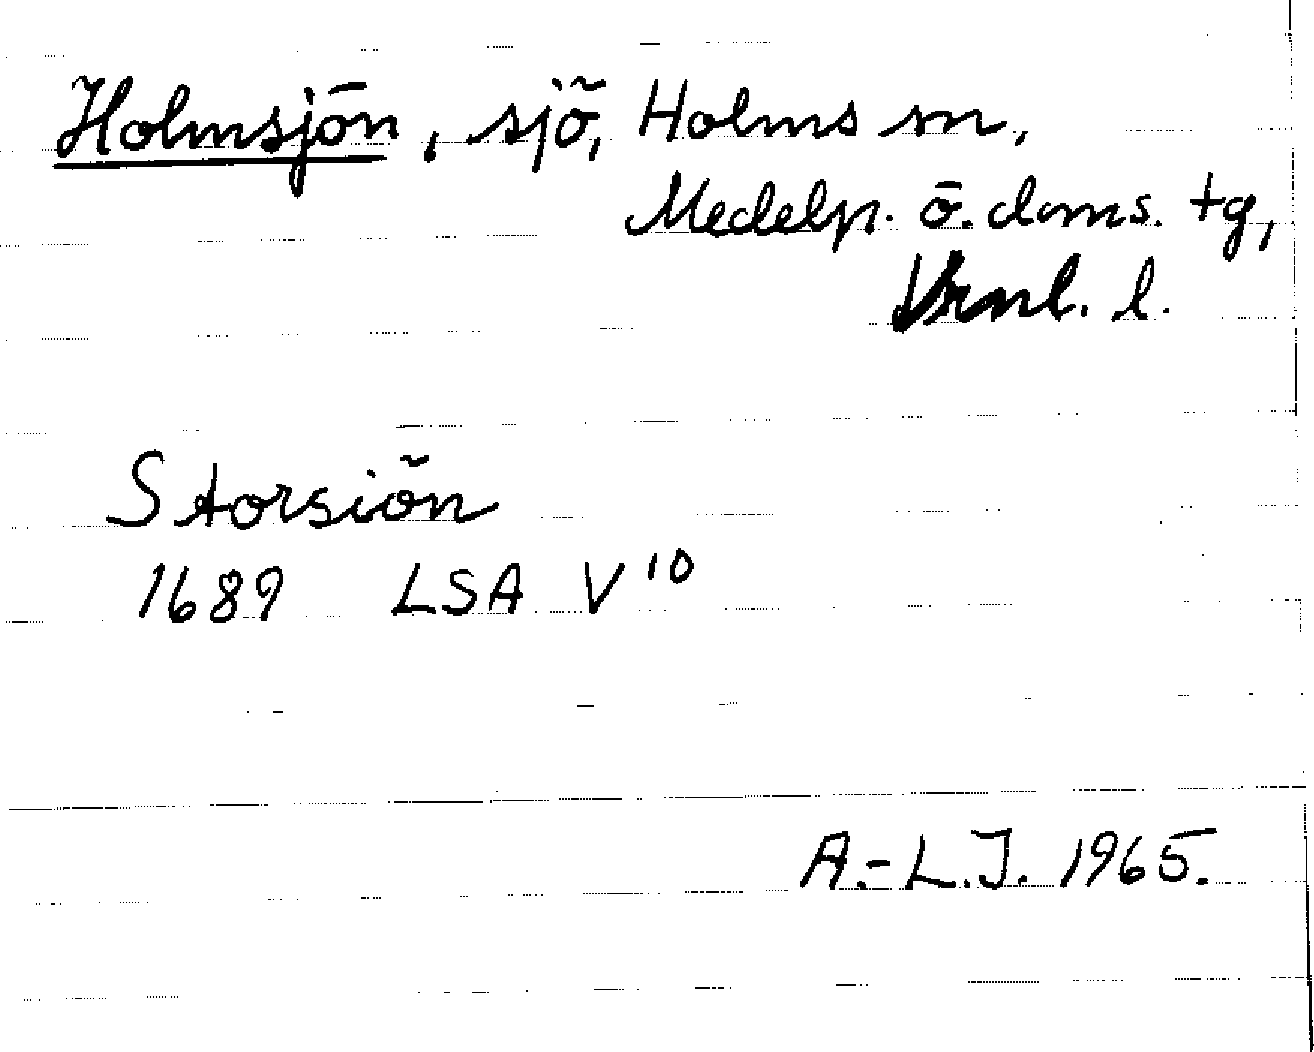 Holmsjön, sjö, Holms sn,
Medelp. ö. doms. tg,
Vrnl. l.
Storsiön
1689 LSA V¹⁰
A.-L.J. 1965.